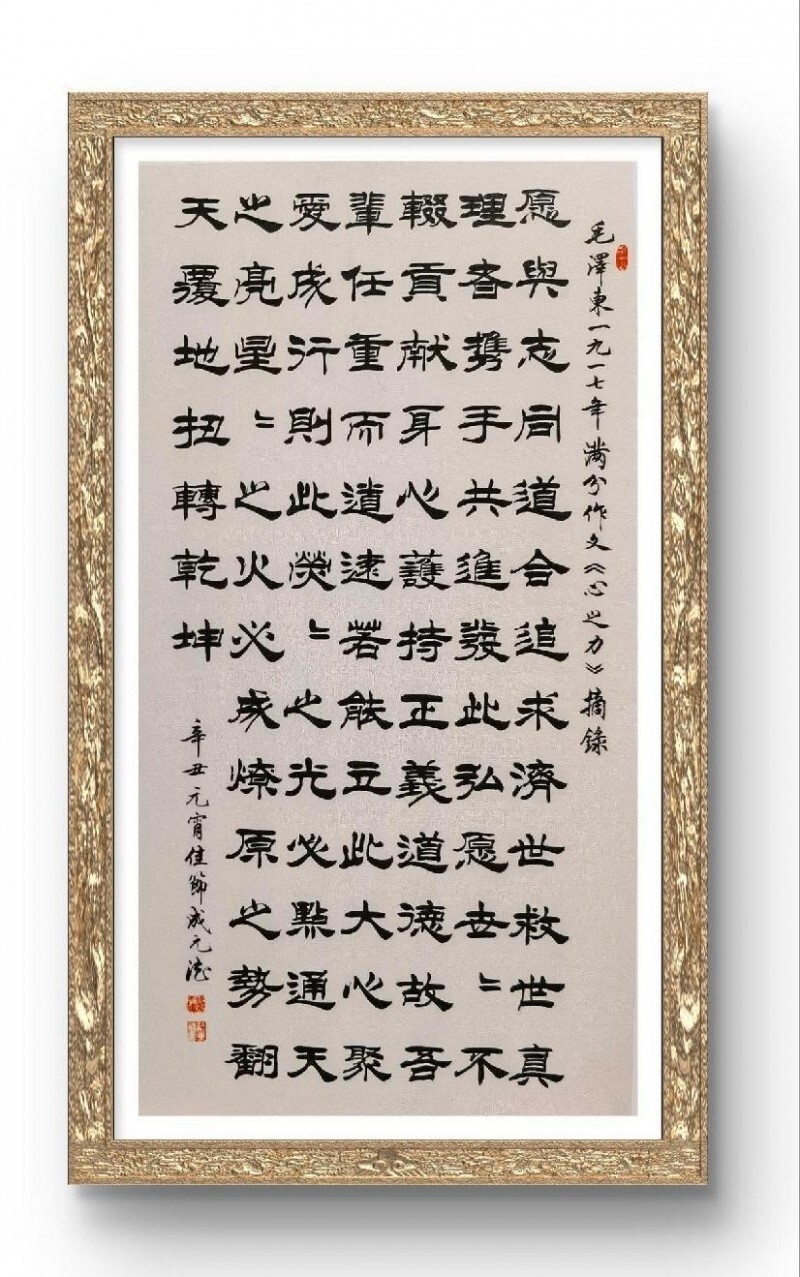 毛澤東一九一七年满分作文《心之力》摘錄
愿與志同道合追求濟世救世真
理者携手共進發此弘愿世〻不
輟貢献身心護持正義道德故吾
輩任重而道遠若能立此大心聚
愛成行則此熒〻之光必點通天
之亮星〻之火必成燎原之勢翻
天覆地扭轉乾坤
辛丑元宵佳節成元